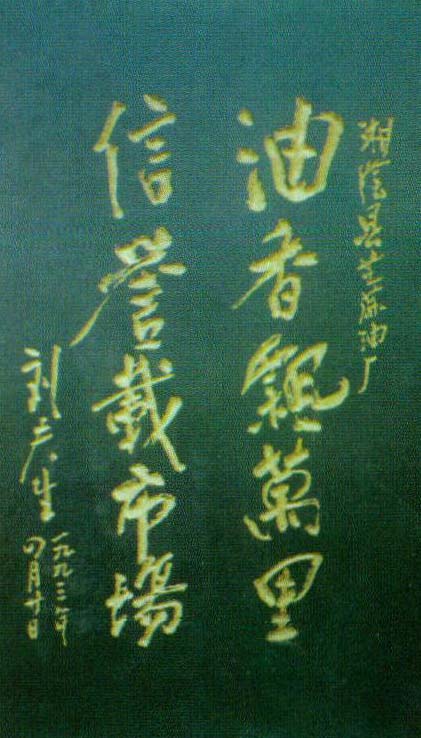 湘阴县芝麻油厂
油香飘萬里
信誉載市場
刘夫生
一九九三年
四月廿日